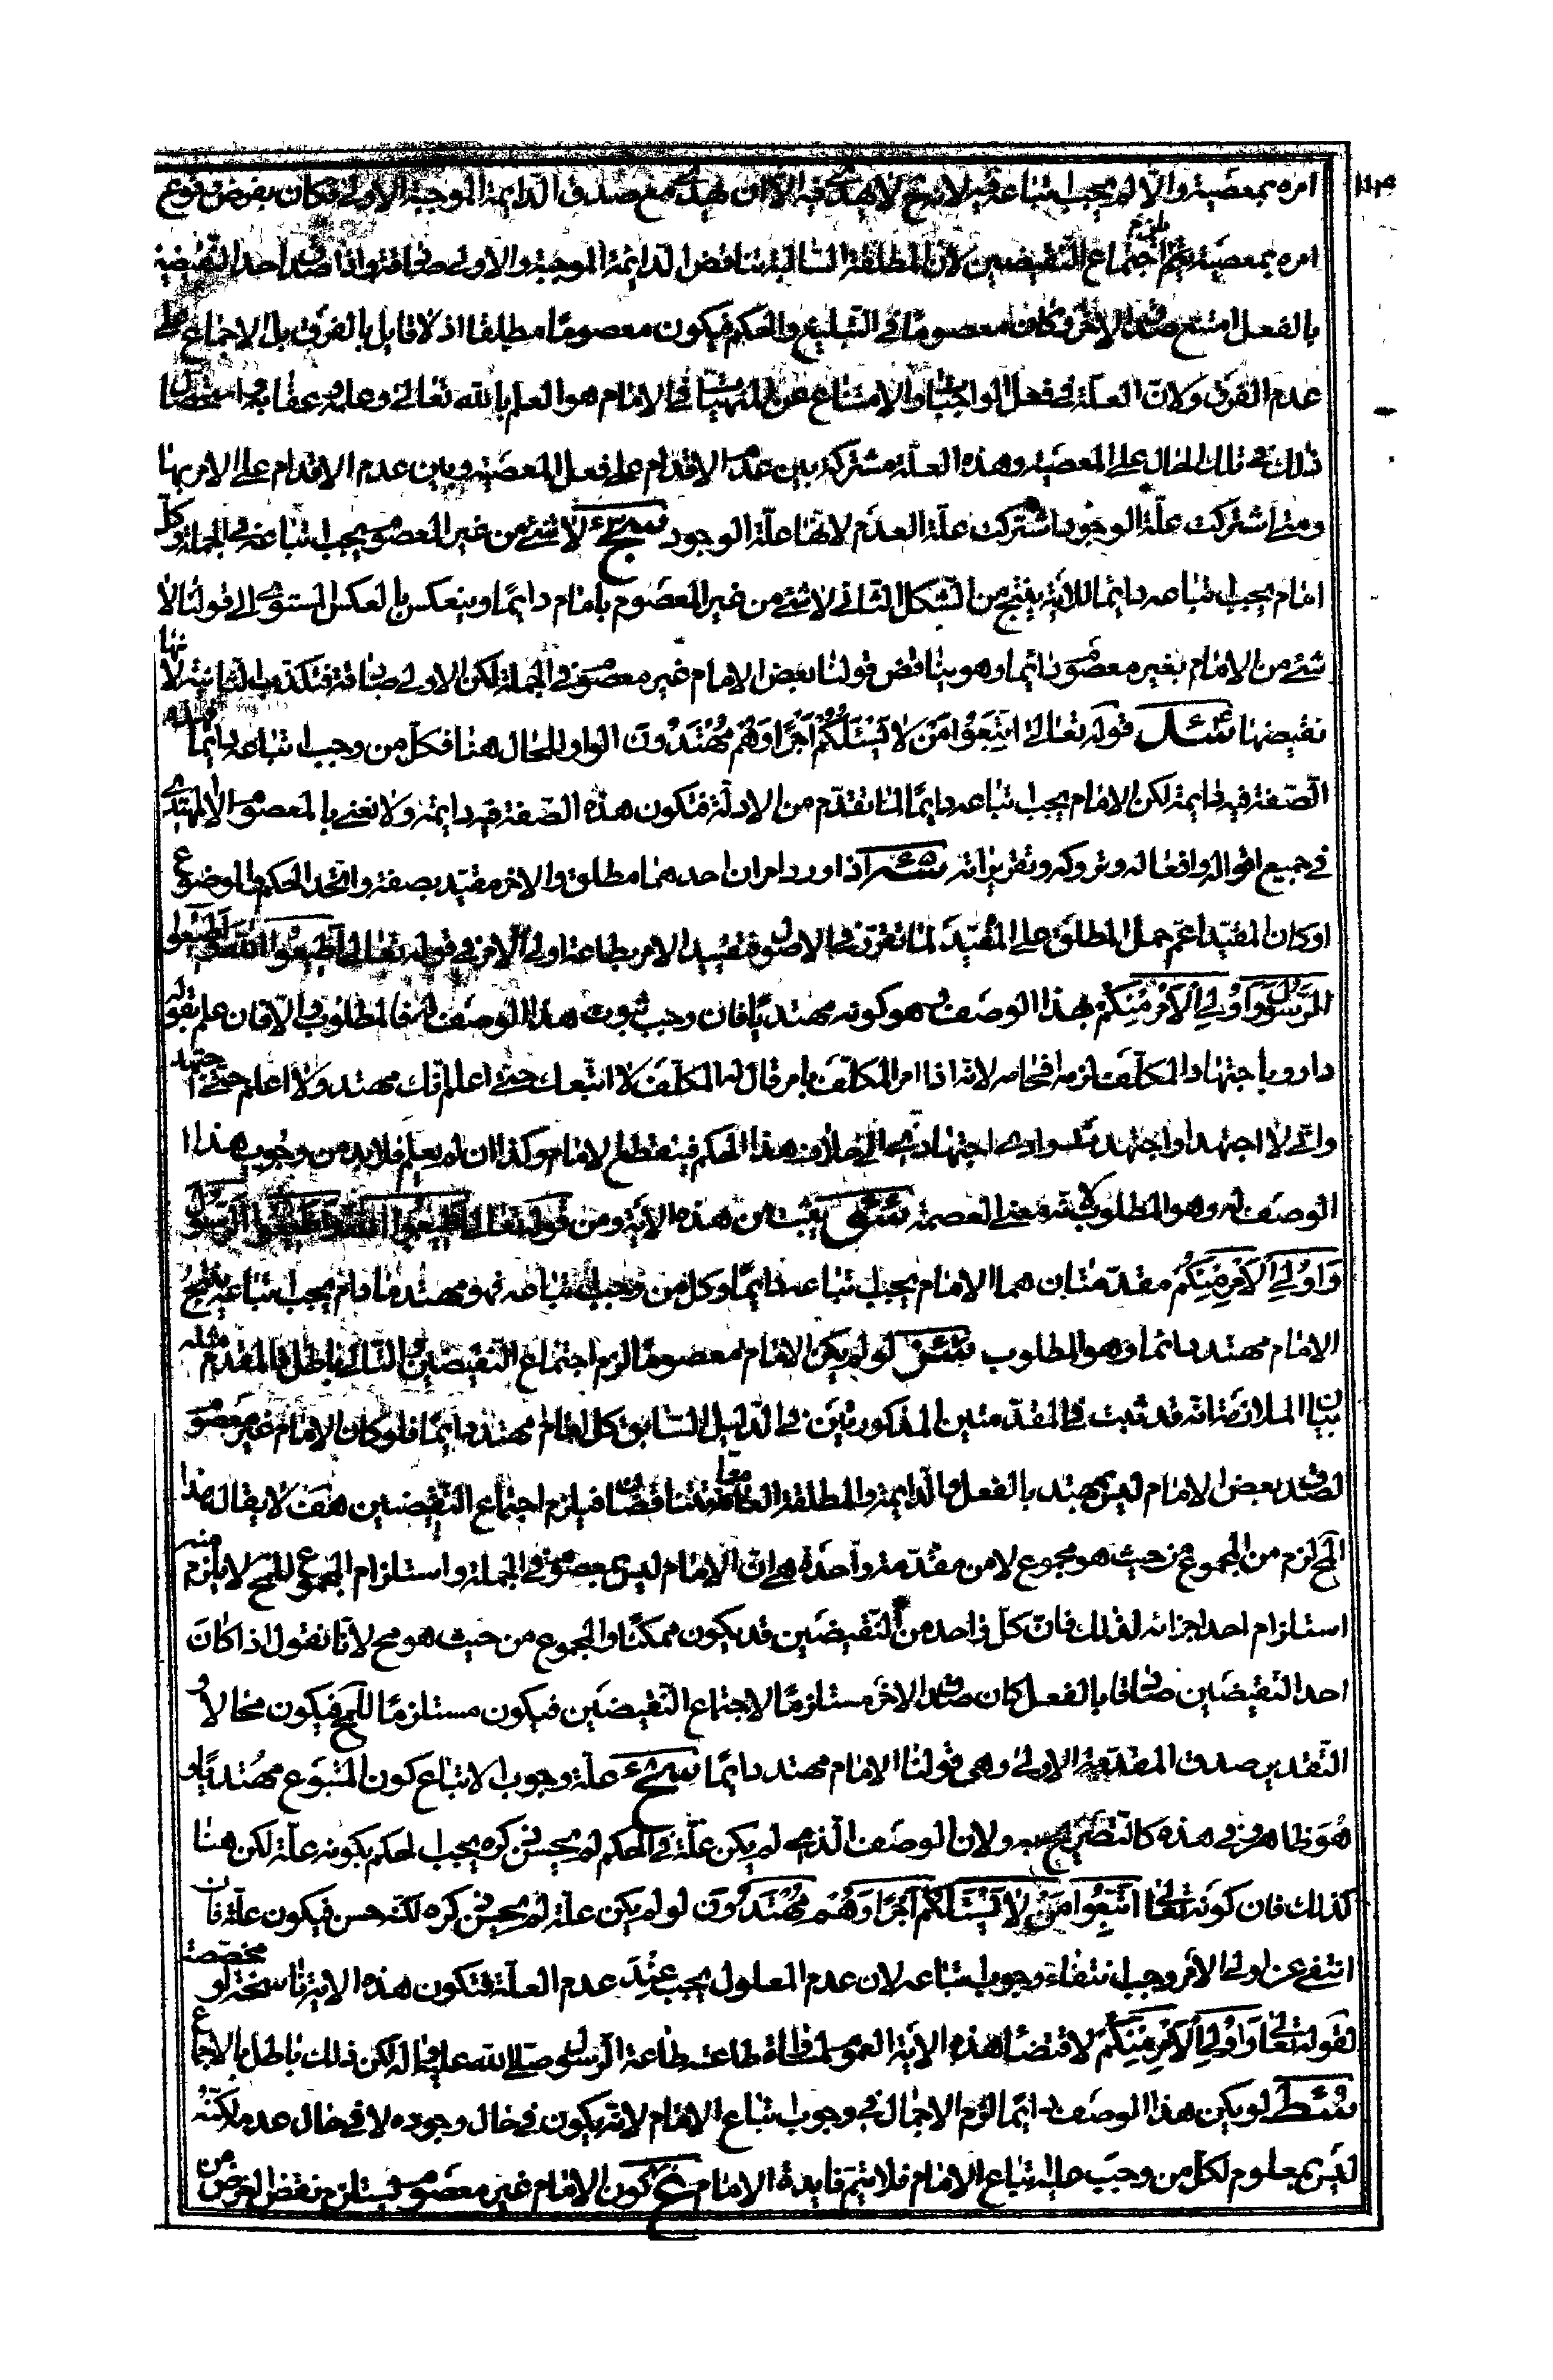 امره بمعصية والا لم يجب اتباعه فيه لانه ح لا يهدى فيه الا ان يهدى مع صدق الدايمة الموجبة الاولى فكان بفرض وقوع
امره بمعصية يلزم اجتماع النقيضين لان المطلقة السالبة تناقض الدائمة الموجبة والاولى صادقة واذا صدق احد النقيضين
بالفعل امتنع صدق الاخر فكان معصوما فى التبليغ والحكم فيكون معصوما مطلقا اذ لا قايل بالفرق بل الاجماع على
عدم الفرق ولان العلة فى فعل الواجبات والامتناع عن المنهيات فى الامام هو العلم بالله تعالى وعلمه عقابه
ذلك فى تلك الحال على المعصية وهذه العلة مشتركة بين عدم الاقدام على فعل المعصية وبين عدم الاقدام على الامر بها
ومتى اشتركت علة الوجود اشتركت علة العدم لانها علة الوجود لا شئ من غير المعصوم يجب اتباعه فى الجملة وكل
امام يجب اتباعه دايما للاية ينتج من الشكل الثانى لا شئ من غير المعصوم بامام دايما وينعكس بالعكس المستوى الى قولنا لا
شئ من الامام بغير معصوم دايما وهو يناقض قولنا بعض الامام غير معصوم فى الجملة لكن الاولى صادقة فتكذب الثانية لانها
نقيضها قوله تعالى اتبعوا من لا يسئلكم اجرا وهم مهتدون الواو للحال هنا فكل من وجب اتباعه دايما فهذه
الصفة فيه دايمة لكن الامام يجب اتباعه دايما لما تقدم من الادلة فتكون هذه الصفة فيه دايمة ولا نعنى بالمعصوم الا المهتدى
فى جميع اقواله وافعاله وتروكه وتقريراته اذا ورد امران احدهما مطلق والاخر مقيد بصفة واتحد الحكم والموضوع
او كان المقيد اعم حمل المطلق على المقيد لما تقرر فى الاصول فتقييد الامر بطاعة اولى الامر فى قوله تعالى اطيعوا الله واطيعوا
الرسول واولى الامر منكم بهذا الوصف هو كونه مهتديا فان وجب ثبوت هذا الوصف له فالمطلوب والا فان علم بقوله
دار وباجتهاد المكلف لزم افحامه لانه اذا امر المكلف بامر قال له المكلف لا اتبعك حتى اعلم انك مهتد ولا اعلم حتى اجتهد
وانى لا اجتهد او اجتهد وادى اجتهادى الى خلاف هذا الحكم فينقطع الامام وكذا ان لم يعلم فلا بد من وجوب هذا
الوصف له وهو المطلوب معنى العصمة يثبت من هذه الاية ومن قوله تعالى اطيعوا الله واطيعوا الرسول
واولى الامر منكم مقدمتان هما الامام يجب اتباعه دايما وكل من وجب اتباعه فهو مهتد ما دام يجب اتباعه ينتج
الامام مهتد دائما وهو المطلوب لو لم يكن الامام معصوما لزم اجتماع النقيضين والتالى باطل فالمقدم مثله
بيان الملازمة انه قد ثبت فى المقدمتين المذكورتين فى الدليل السابق كل امام مهتد دايما فلو كان الامام غير معصوم
لصدق بعض الامام ليس بمهتد بالفعل والدايمة والمطلقة العامة متناقضان فيلزم اجتماع النقيضين هف لا يقال هذا
المح لزم من المجموع من حيث هو مجموع لا من مقدمة واحدة هى ان الامام ليس بمعصوم فى الجملة واستلزام المجموع للمح لا يلزم منه
استلزام احد اجزائه لذلك فان كل واحد من النقيضين قد يكون ممكنا والمجموع من حيث هو مح لانا نقول اذا كان
احد النقيضين صادقا بالفعل كان صدق الاخر مستلزما لاجتماع النقيضين فيكون مستلزما للمح فيكون محالا و
التقدير صدق المقدمة الاولى وهى قولنا الامام مهتد دايما علة وجوب الاتباع كون المتبوع مهتديا و
هو ظاهر فى هذه كالتصريح به ولان الوصف الذى لم يكن علة فى الحكم لم يحسن ذكره يجب الحكم بكونه علة لكن هنا
كذلك فان كونه تعالى اتبعوا من لا يسئلكم اجرا وهم مهتدون لو لم يكن علة لم يحسن ذكره لكنه حسن فيكون علة فان
انتفى عن اولى الامر وجب انتفاء وجوب اتباعه لان عدم المعلول يجب عند عدم العلة فتكون هذه الاية ناسخة او مخصصة
لقوله تعالى واولى الامر منكم لاقتضاء هذه الاية العموم لمساواة طاعته طاعة الرسول صلى الله عليه واله لكن ذلك باطل بالاجماع
لو لم يكن هذا الوصف دائما لزم الاجمال فى وجوب اتباع الامام لانه يكون فى حال وجوده لا فى حال عدمه لكنه
ليس بمعلوم لكل من وجب عليه اتباع الامام فلا تتم فايدة الامام كون الامام غير معصوم يستلزم نقض الغرض من